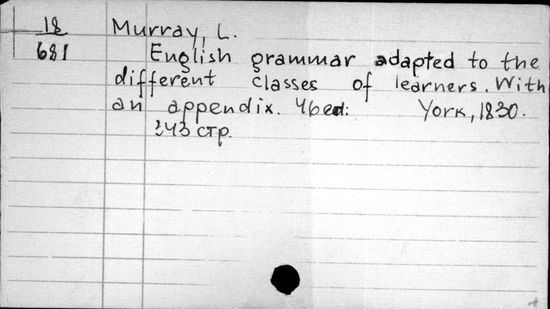 18
681
Murray, L.
English grammar adapted to the
different classes of learners. With
an appendix. 46 ed. York, 1830.
343 стр.